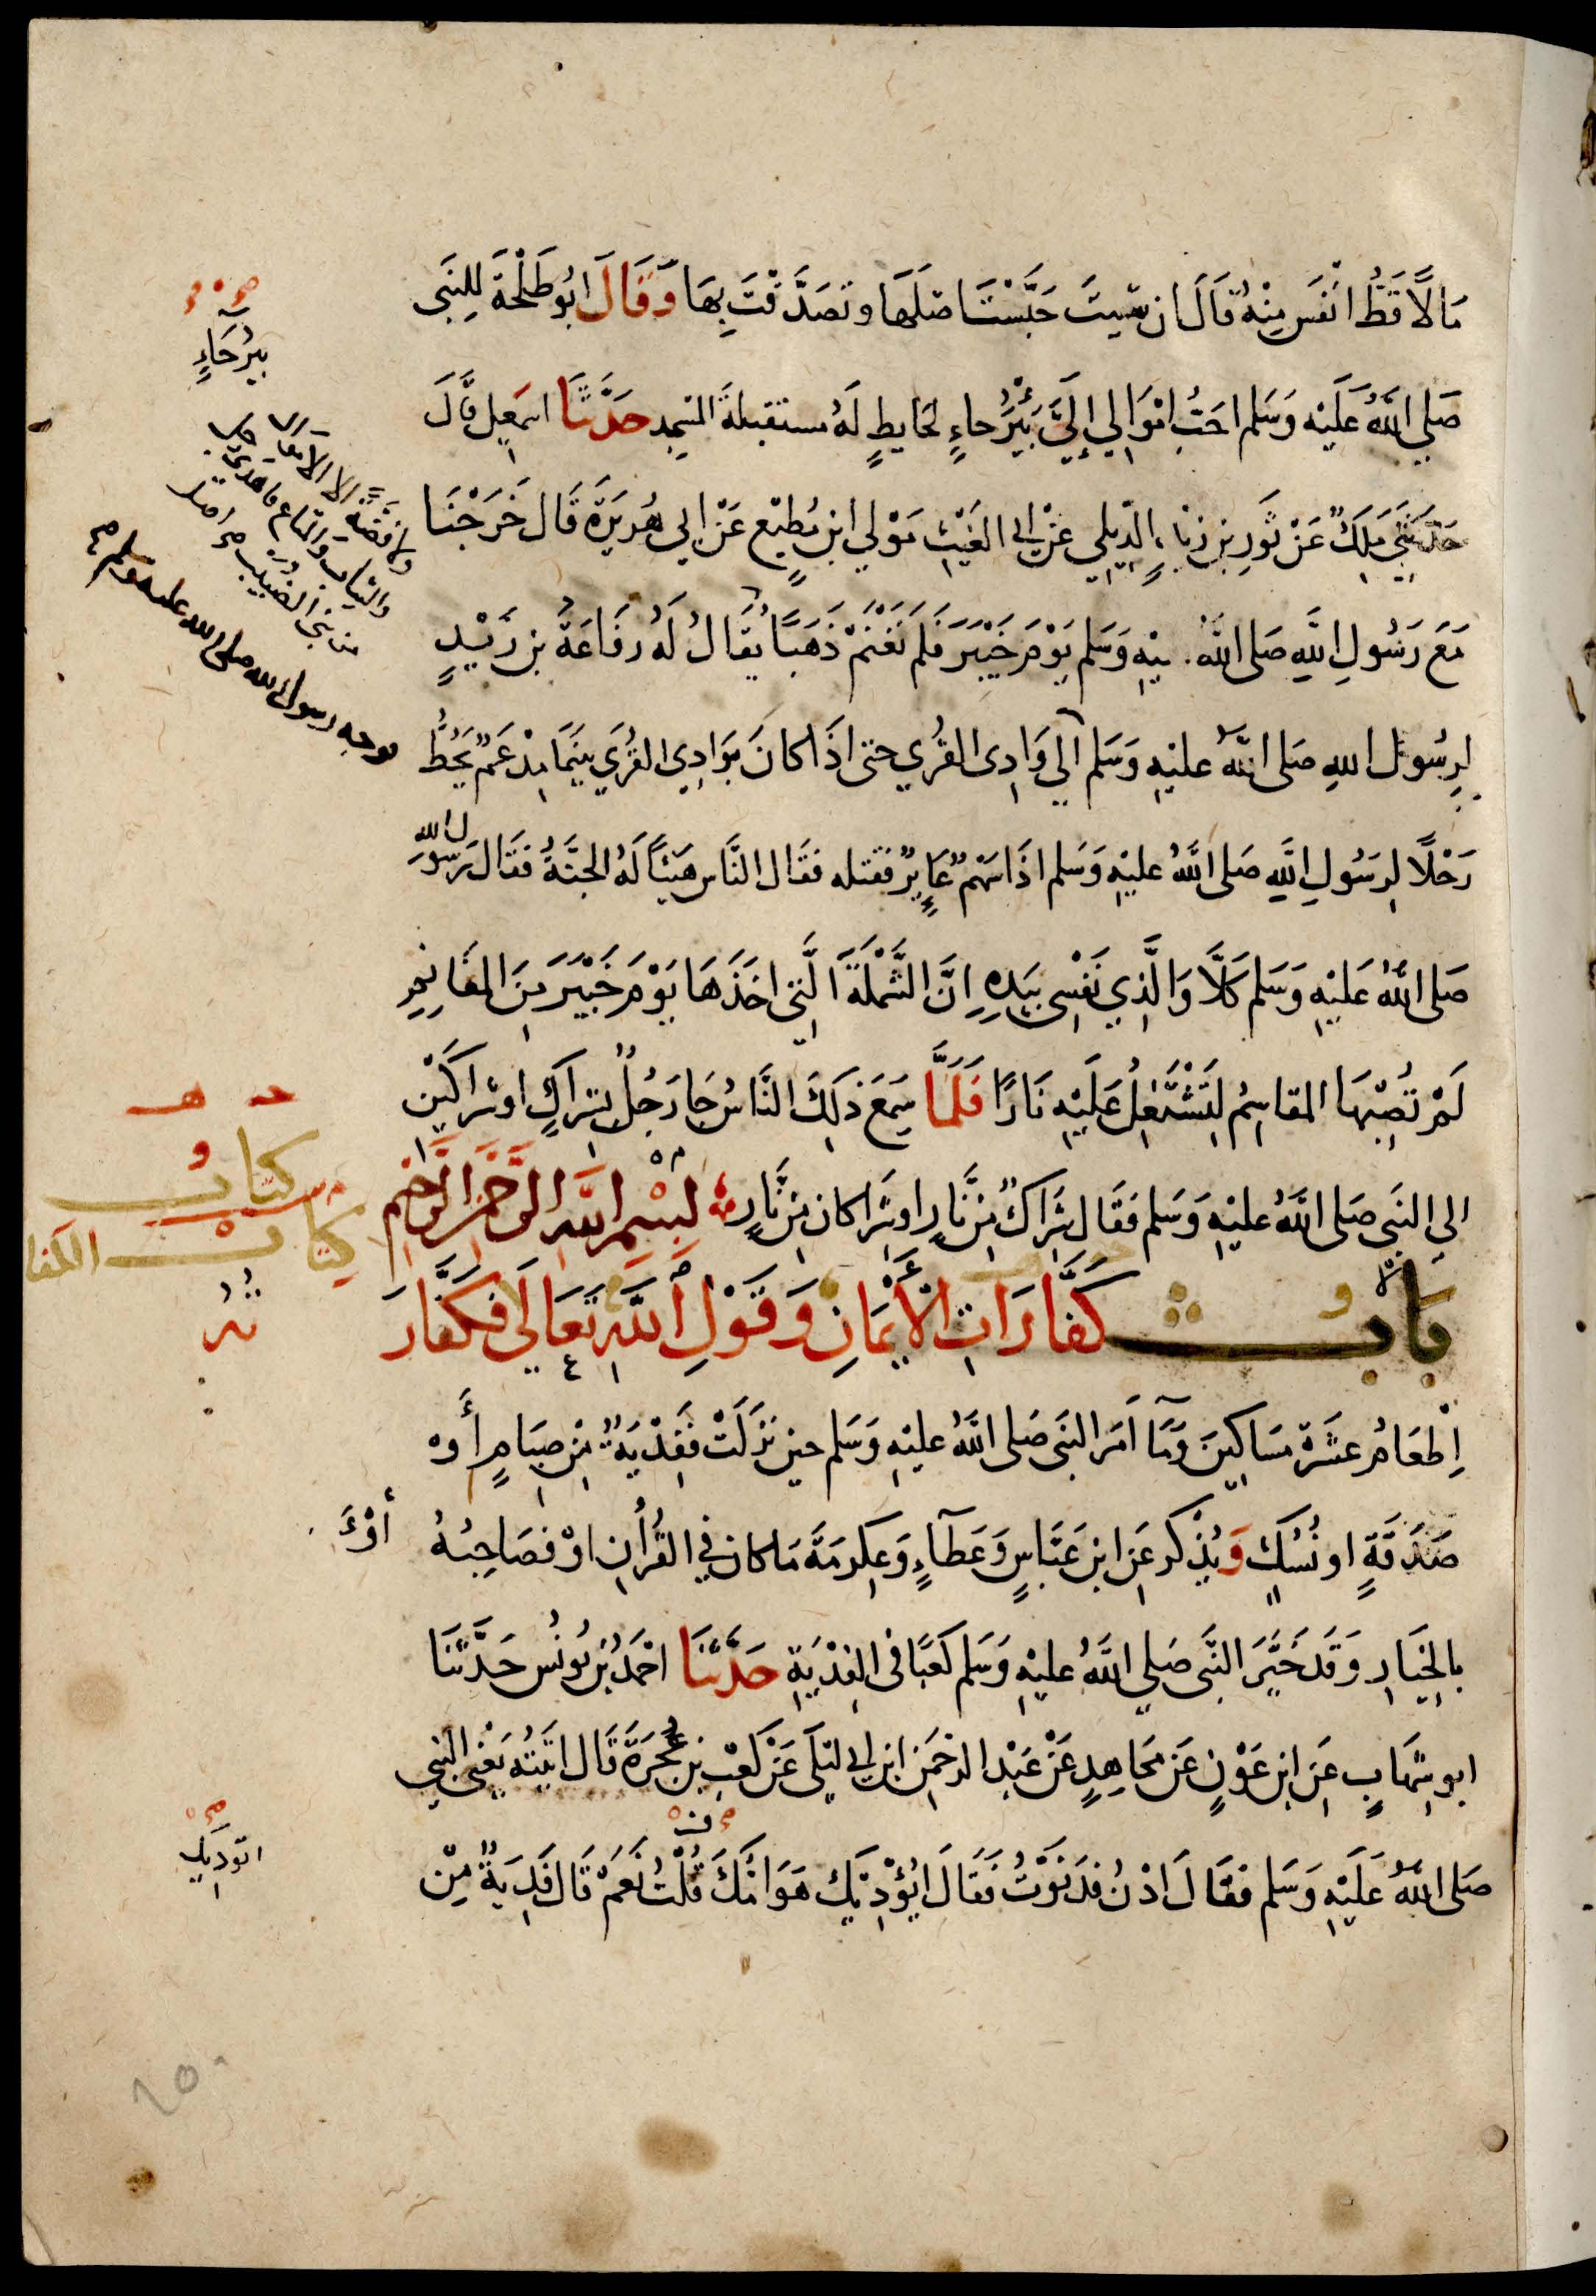 مَالًا قَطُّ انْفَسَ مِنْهُ قَالَ ان شِيتَ حَبَّسْتَ اصْلَهَا وتَصَدَّقْتَ بِهَا وَقَالَ ابُو طَلْحَةَ لِلنَّبِى
صَلي اللَّهُ عَلَيْه وَسَلم احَبُّ امْوَالِي إِلَيَّ بَيْرُحاءٍ لحَايطٍ لَهُ مستقبلةَ المسْجِد حَدَّثَنَا اسمعِيل قَالَ
حَدَّثَنِي مَلِكٌ عَنْ ثَوْرِ بنِ زيْدٍ الدِّيلِي عَنْ ابِي الغَيْثِ مَوْلي ابنِ مُطِيْعٍ عَنْ ابي هُرَيرَةَ قَال خَرَجْنَا
مَعَ رَسُولِ اللَّهِ صَلى اللَّهُ عليْهِ وَسَلم يَوْمَ خَيْبَرَ فَلَم نَغْنَمْ ذَهَبًا يُقَالُ لَهُ رفَاعَةُ بن زَيْدٍ
لرسُول اللهِ صَلى اللَّهُ عليْهِ وَسَلم الَي وَادِى القُرَي حتى اذَا كانَ بوَادِي القُرَي بَيْنَمَا مِدْعَمٌ يَحُطُّ
رَحْلًا لِرَسُولِ اللَّهِ صَلى اللَّهُ عليْهِ وَسَلم اذَا سَهْمٌ عَايِرٌ فقتله فقَال النَّاس هَنِيًا لَهُ الجنَّةُ فقَال رَسُول الله
صَلى اللَّهُ عَليْهِ وَسَلم كَلَّا وَالَّذِي نَفْسِي بيَدِهِ اِنَّ الشَّمْلَةَ الَّتِي اخَذَهَا يَوْمَ خَيْبَرَ مِنَ المغَانِمِ
لَمْ تُصِبْهَا المقاسِمُ لَتَشْتَعِلُ عَلَيْهِ نَارًا فَلَمَّا سَمِعَ ذَلِكَ النَّاسُ جَا رَجُلٌ بشِرَاكٍ او شرَاكَيْن
الي النَّبي صَلى اللَّهُ عليْهِ وَسَلم فقَال شِرَاكٌ مِن نَّارٍ او شِرَاكان مِن نَّارٍ بِسْمِ اللَّهِ الرَّحْمَنِ الرَّحِيمِ
بَابُ كَفَّارَاتِ الأَيْمَانِ وَقَوْلِ اللَّهِ تَعَالَي فكَفَّارَ
اِطْعَامُ عشَرَةِ مَسَاكِينَ وَمَا اَمَرَ النَّبي صَلى اللَّهُ عليْهِ وَسَلم حين نزَلَتْ فَفِدْيَةٌ مِن صِيَامٍ أَوْ
صَدَقَةٍ او نُسُكٍ وَيُذْكر عَنِ ابن عَبَّاسٍ وَعَطآءٍ وَعِكرمَةَ مَا كان في القُرْانِ اوْ فصَاحِبُهُ أَوْ
بالخِيَارِ وَقَد خَيَّرَ النَّبي صَلي اللَّهُ عليْهِ وَسَلم كَعْبًا فى الفِدْيَةِ حَدَّثَنَا احْمَدُ بْن يُونُس حَدَّثَنَا
ابو شِهَابٍ عَنِ ابنِ عَوْنٍ عَن مُجَاهِدٍ عَنْ عَبْد الرحْمَنِ ابنِ ابي ليْلَى عَنْ كَعْبِ بن عُجْرَةَ قَال اتَيْتُه يَعْني النَّبي
صَلى اللَّهُ عَلَيْهِ وَسَلم فقَالَ ادْنُ فدَنَوْتُ فَقَالَ ايُؤْذِيْك هَوَامُّكَ قُلْتُ نَعَمْ قَال فَدِيَةٌ مِّن
بيرُحَاءٍ
ولا فضةً الا الاموال
والثياب والمتاع فاهدى رجل
من بني الضبيب
فوجه رسول الله صلى الله عليه وسلم
كتابُ
كِتابُ الكفا